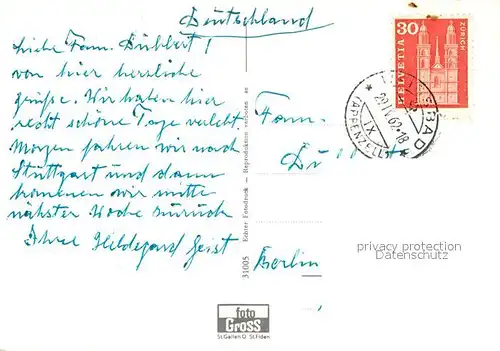 Deutschland
Liebe Fam. Dühbert!
von hier herzliche
Grüße. Wir haben hier
recht schöne Tage verlebt.
Morgen fahren wir nach
Stuttgart und dann
kommen wir mitte
nächster Woche zurück
Ihre Hildegard Geist
31005 Echter Fotodruck — Reproduktion verboten
30
HELVETIA
ZÜRICH
BAD
20.IX.62-18
(APPENZELL)
Fam.
Berlin
privacy protection
Datenschutz
foto
GROSS
St.Gallen O St.Fiden